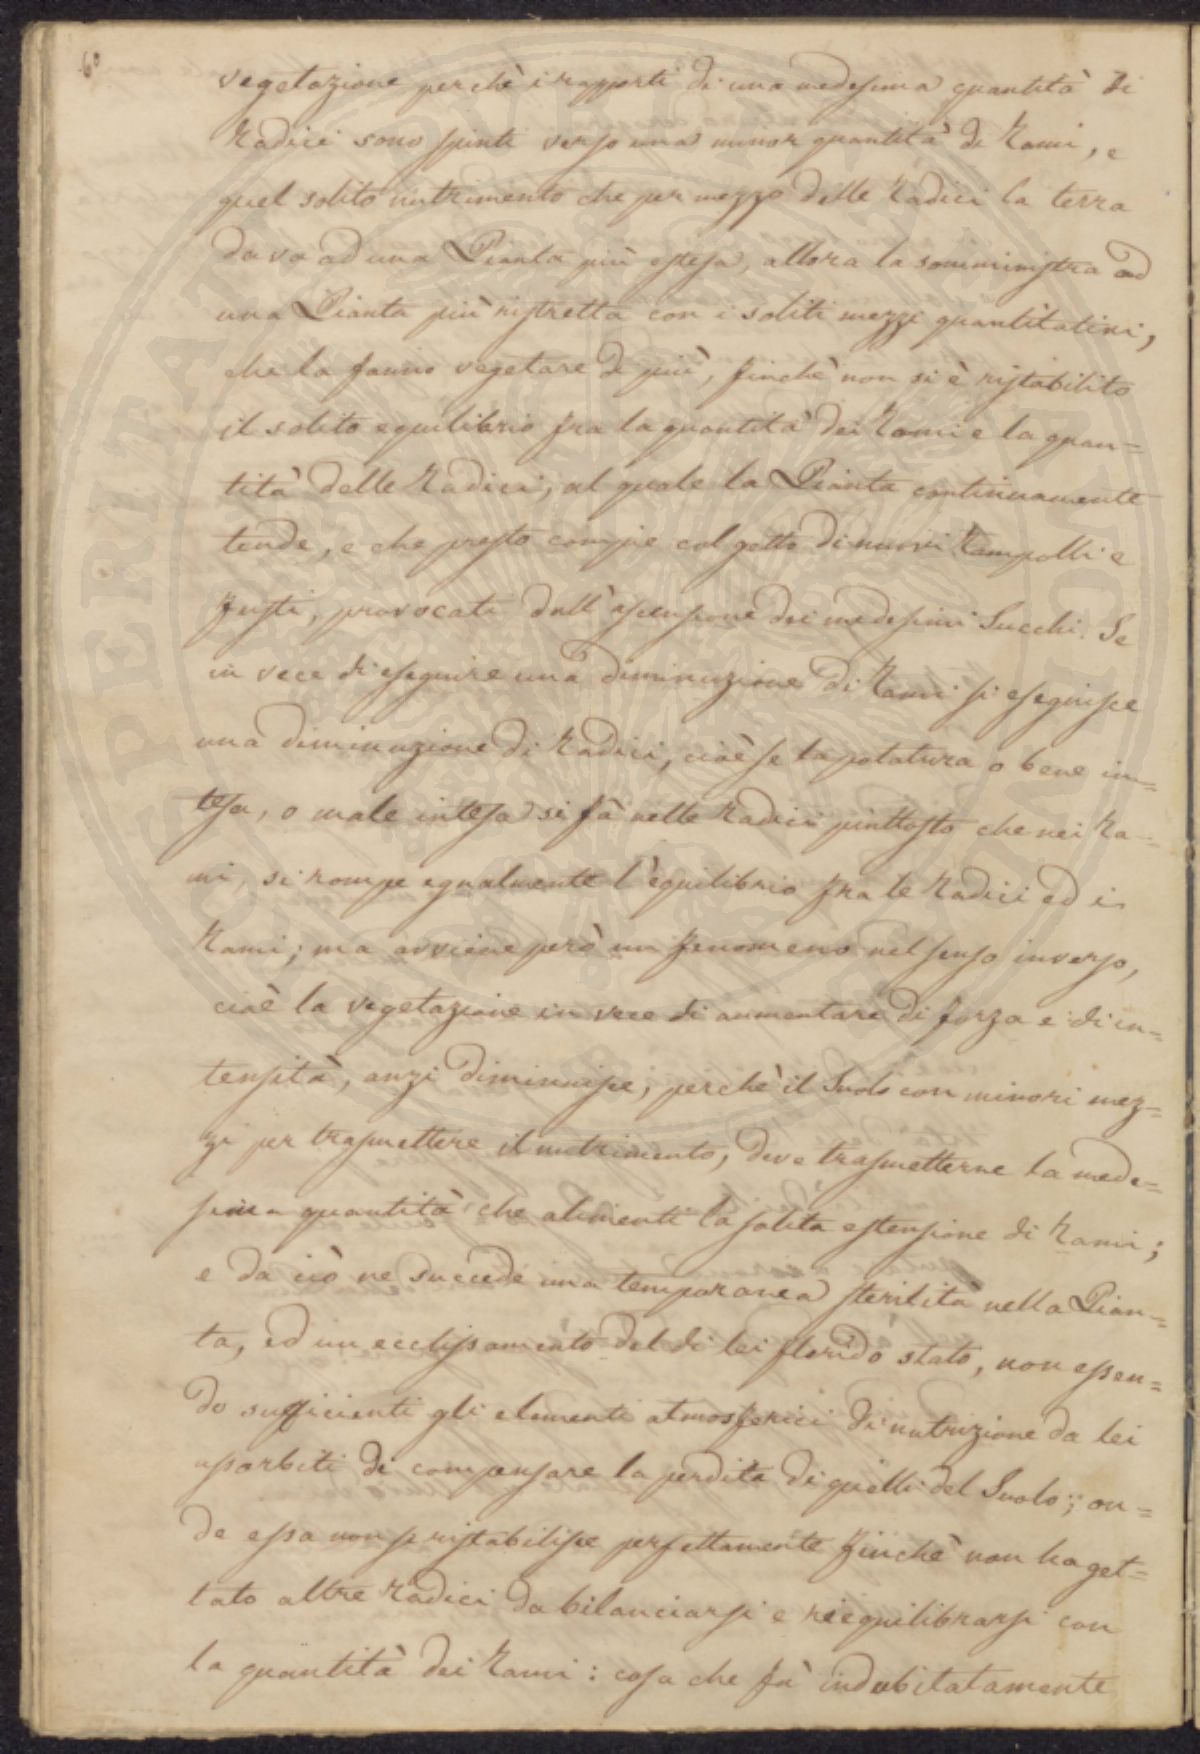 60
vegetazione perchè i rapporti di una medesima quantità di
Radici sono spinti verso una minor quantità di Rami, e
quel solito nutrimento che per mezzo delle Radici la terra
dava ad una Pianta più estesa, allora la somministra ad
una Pianta più ristretta con i soliti mezzi quantitativi,
che la fanno vegetare di più, finchè non si è ristabilito
il solito equilibrio fra la quantità dei Rami e la quan=
tità delle Radici, al quale la Pianta continuamente
tende, e che presto compie col getto di nuovi Rampolli e
Fusti, provocati dall'ascensione dei medesimi Succhi. Se
in vece di eseguire una diminuzione di Rami si eseguisce
una diminuzione di Radici, cioè se la potatura o bene in=
tesa, o male intesa si fà nelle Radici piuttosto che nei Ra=
mi, si rompe egualmente l'equilibrio fra le Radici ed i
Rami; ma avviene però un fenomeno nel senso inverso,
cioè la vegetazione in vece di aumentare di forza e di in=
tensità, anzi diminuisce, perchè il Suolo con minori mez=
zi per trasmettere il nutrimento, deve trasmetterne la mede=
sima quantità che alimenti la solita estensione di Rami;
e da ciò ne succede una temporanea sterilità nella Pian=
ta, ed un ecclissamento del di lei florido stato, non essen=
do sufficienti gli elementi atmosferici di nutrizione da lei
assorbiti di compensare la perdita di quelli del Suolo; on=
de essa non si ristabilisce perfettamente finchè non ha get=
tato altre Radici da bilanciarsi e riequilibrarsi con
la quantità dei Rami: cosa che fà indubitatamente
COSPERITATI PUBLICAE